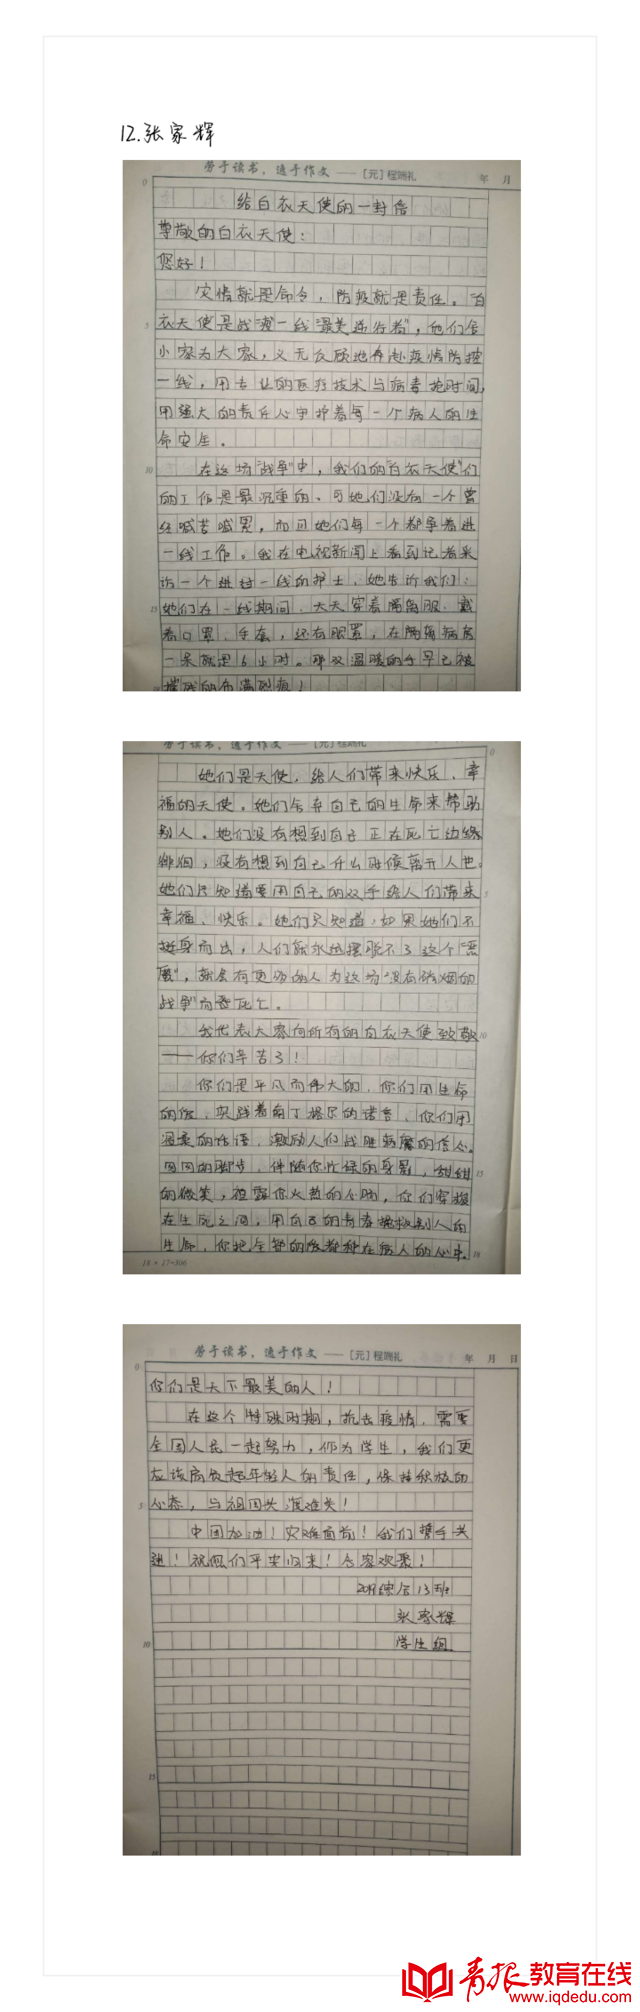 12.张家辉
劳于读书，逸于作文——[元]程端礼 年 月
0
给白衣天使的一封信
尊敬的白衣天使：
您好！
灾情就是命令，防疫就是责任。“白
5
衣天使”是战“疫”一线“最美逆行者”，他们舍
小家为大家，义无反顾地奔赴疫情防控
一线，用专业的医疗技术与病毒抢时间，
用强大的责任心守护着每一个病人的生
命安全。
10
在这场“战争”中，我们的“白衣天使”们
的工作是最沉重的、可她们没有一个曾
经喊苦喊累，而且她们每一个都争着进
一线工作。我在电视新闻上看到记者采
访一个进过一线的护士，她告诉我们：
15
她们在一线期间，天天穿着隔离服、戴
着口罩、手套，还有眼罩，在隔离病房
一呆就是6小时。那双温暖的手早已被
摧残的布满裂痕！
劳于读书，逸于作文——[元]程端礼
0
她们是天使，给人们带来快乐、幸
福的天使。她们舍弃自己的生命来帮助
别人。她们没有想到自己正在死亡边缘
徘徊，没有想到自己什么时候离开人世。
她们只知道要用自己的双手给人们带来
5
幸福、快乐。她们只知道，如果她们不
挺身而出，人们就永远摆脱不了这个“恶
魔”，就会有更多的人为这场“没有硝烟的
战争”而死亡。
我代表大家向所有的白衣天使致敬
10
——你们辛苦了！
你们是平凡而伟大的，你们用生命
的爱，实践着南丁格尔的诺言，你们用
温柔的话语，激励人们战胜病魔的信心。
匆匆的脚步，伴随你忙碌的身影，甜甜
15
的微笑，袒露你火热的心胸，你们穿梭
在生死之间，用自己的青春拯救别人的
生命，你把全部的爱都种在病人的心中。
18
18×17=306
劳于读书，逸于作文——[元]程端礼 年 月 日
0
你们是天下最美的人！
在这个特殊时期，抗击疫情，需要
全国人民一起努力，作为学生，我们更
应该肩负起年轻人的责任，保持积极的
5
心态，与祖国共渡难关！
中国加油！灾难面前！我们携手共
进！祝你们平安归来！合家欢聚！
2019综合13班
张家辉
10
学生组
15
青报教育在线
www.iqdedu.com